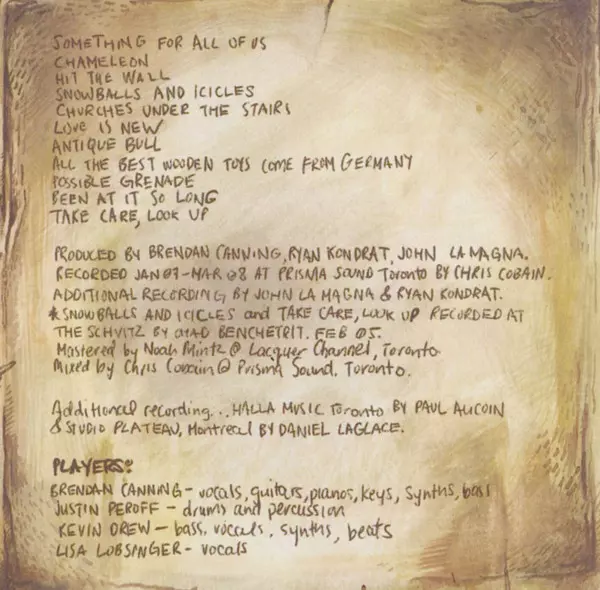 SOMETHING FOR ALL OF US
CHAMELEON
HIT THE WALL
SNOWBALLS AND ICICLES
CHURCHES UNDER THE STAIRS
LOVE IS NEW
ANTIQUE BULL
ALL THE BEST WOODEN TOYS COME FROM GERMANY
POSSIBLE GRENADE
BEEN AT IT SO LONG
TAKE CARE, LOOK UP
PRODUCED BY BRENDAN CANNING, RYAN KONDRAT, JOHN LA MAGNA.
RECORDED JAN 07-MAR 08 AT PRISMA SOUND Toronto BY CHRIS COBAIN.
ADDITIONAL RECORDING BY JOHN LA MAGNA & RYAN KONDRAT.
*SNOWBALLS AND ICICLES and TAKE CARE, LOOK UP RECORDED AT
THE SCHVITZ BY OHAD BENCHETRIT. FEB 05.
Mastered by Noah Mintz @ Lacquer Channel, Toronto
Mixed by Chris Cobain @ Prisma Sound, Toronto.
Additional recording... HALLA MUSIC Toronto BY PAUL AUCOIN
& STUDIO PLATEAU, Montreal BY DANIEL LAGLACE.
PLAYERS:
BRENDAN CANNING - vocals, guitars, pianos, keys, synths, bass
JUSTIN PEROFF - drums and percussion
KEVIN DREW - bass, vocals, synths, beats
LISA LOBSINGER - vocals